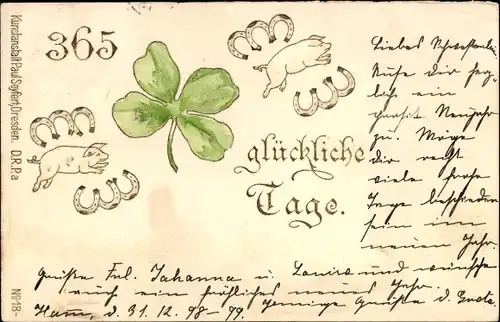 Kunstanstalt Paul Seyfert, Dresden. D.R.P.a
No 18-
365
glückliche
Tage.
Liebes
Rufe dir
ein
prosit Neujahr
zu. Möge
dir recht
viele frohe
Tage beschieden
sein im
neuen Jahr.
Grüße Frl. Johanna u. Louise und wünsche
auch ein fröhliches neues Jahr.
Ham, d. 31. 12. 98-99. Innige Grüße d.